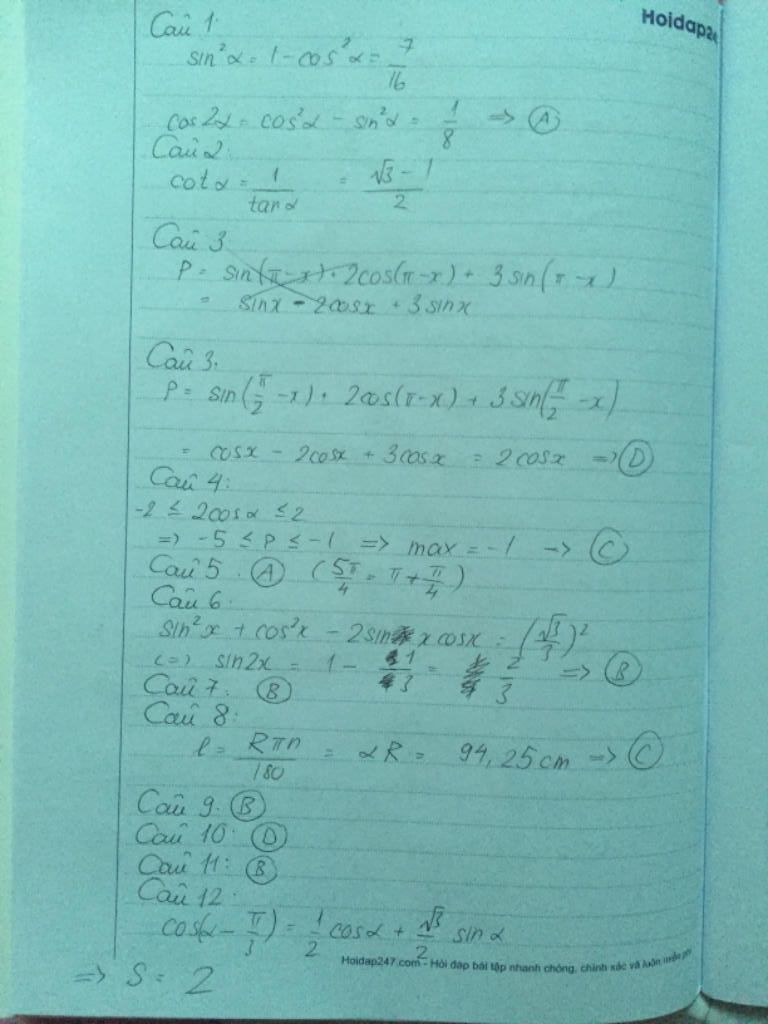 Hoidap24
Câu 1
sin²α = 1 - cos²α = 7/16
cos2α = cos²α - sin²α = 1/8 => A
Câu 2:
cotα = 1/tanα = (√3 - 1)/2
Câu 3
P = sin(π-x) + 2cos(π-x) + 3sin(π-x)
= sinx - 2cosx + 3sinx
Câu 3.
P = sin(π/2 - x) + 2cos(π-x) + 3sin(π/2 - x)
= cosx - 2cosx + 3cosx = 2cosx => D
Câu 4:
-2 ≤ 2cosα ≤ 2
=> -5 ≤ P ≤ -1 => max = -1 -> C
Câu 5. A (5π/4 = π + π/4)
Câu 6.
sin²x + cos²x - 2sin x cosx = (√3/3)²
<=> sin2x = 1 - 1/3 = 2/3 => B
Câu 7: B
Câu 8:
l = Rπn/180 = αR = 94,25cm => C
Câu 9. B
Câu 10: D
Câu 11: B
Câu 12.
cos(α - π/3) = 1/2 cosα + √3/2 sinα
Hoidap247.com - Hỏi đáp bài tập nhanh chóng, chính xác và luôn miễn phí
=> S = 2